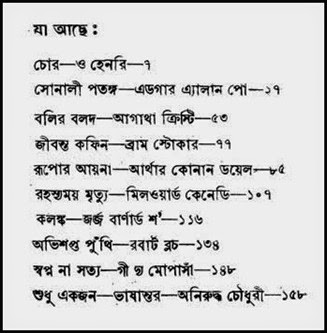 যা আছে :
চোর—ও হেনরি—৭
সোনালী পতঙ্গ—এডগার এ্যালান পো—২৭
বলির বলদ—আগাথা ক্রিস্টি—৫৩
জীবন্ত কফিন—ব্রাম স্টোকার—৭৭
রূপোর আয়না—আর্থার কোনান ডয়েল—৮৫
রহস্যময় মৃত্যু—মিলওয়ার্ড কেনেডি—১০৭
কলঙ্ক—জর্জ বার্ণার্ড শ'—১১৬
অভিশপ্ত পুঁথি—রবার্ট ব্লচ—১৩৪
স্বপ্ন না সত্য—গী দ্য মোপাসাঁ—১৪৮
শুধু একজন—ভাষান্তর—অনিরুদ্ধ চৌধুরী—১৫৮